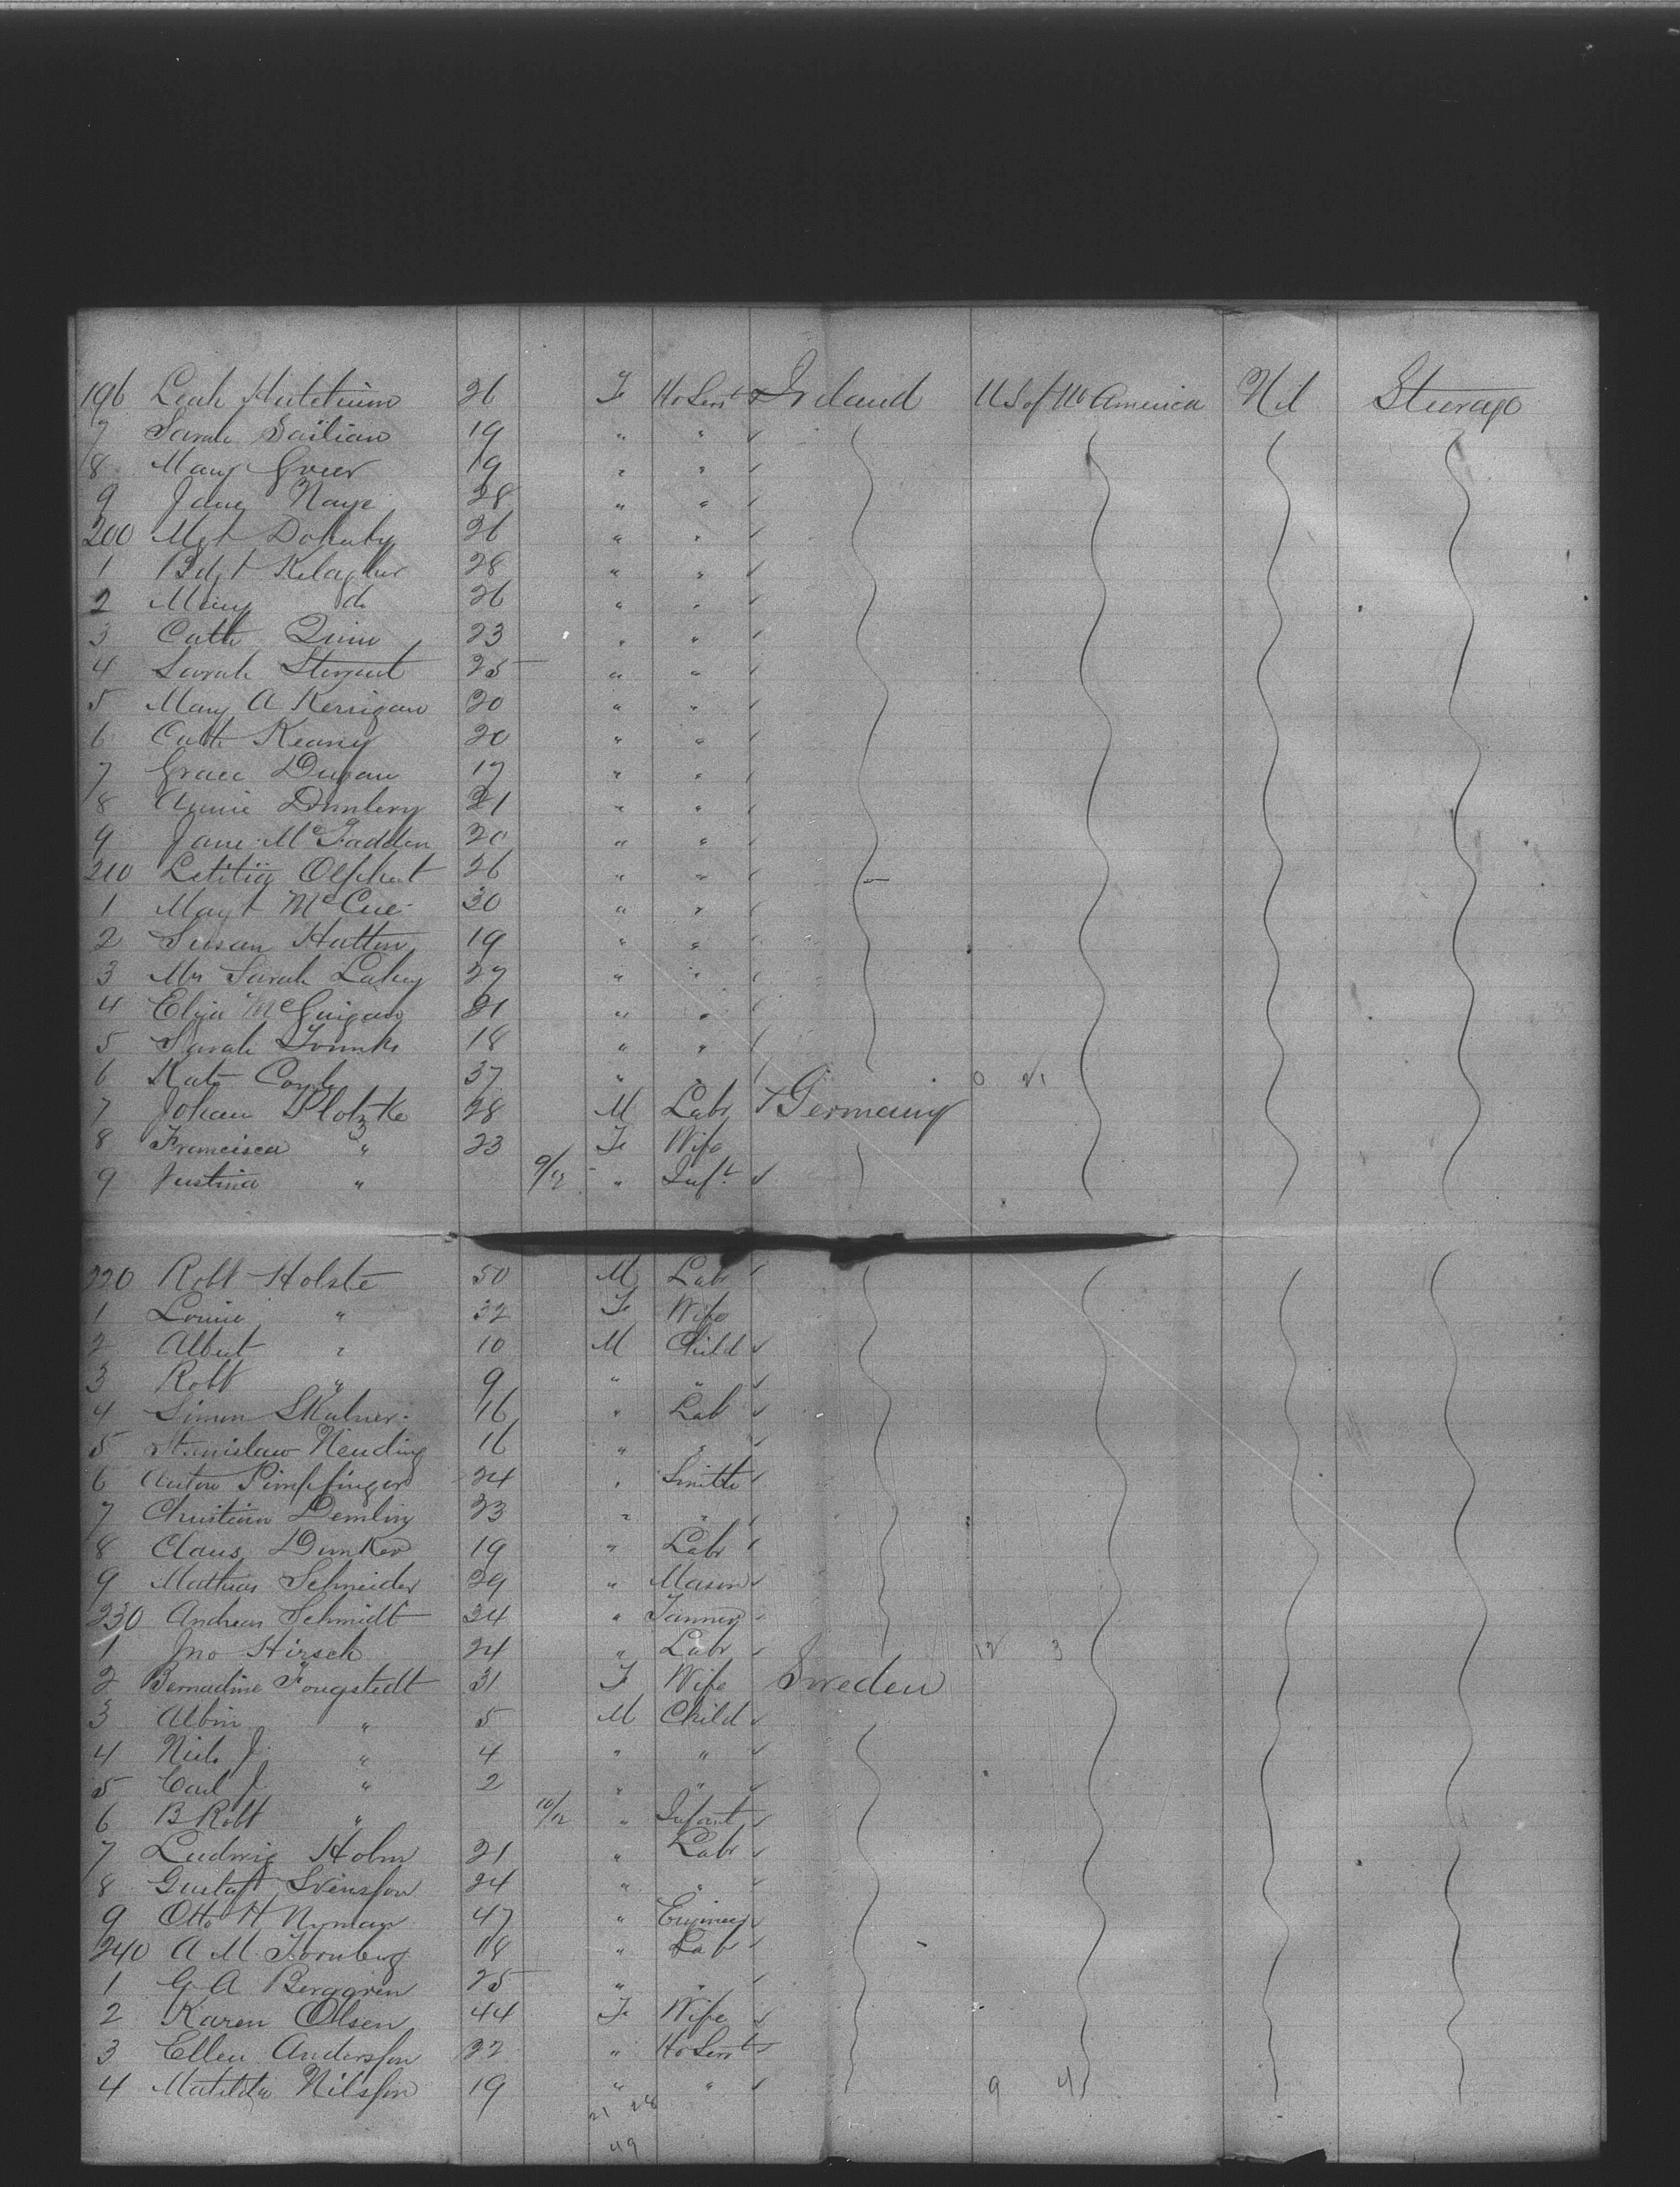 196 Leah 26 Fe Ho Servt Ireland U S of N America Nil Steerage
7 Sarah 19 " "
8 Mary Greer 19 " "
9 Jane Naye 28 " "
200 Mgt Doherty 26 " "
1 Bdgt Kelagher 28 " "
2 Mary do 26 " "
3 Cath Quinn 23 " "
4 Sarah 25 " "
5 Mary A Kerrigan 20 " "
6 Cath Keany 20 " "
7 Grace Dugan 17 " "
8 Annie 21 " "
9 Jane McFadden 20 " "
210 Letitia Olphert 26 " "
1 Magt McCue 30 " "
2 Susan Hatton 19 " "
3 Mrs Sarah Lahey 27 " "
4 Eliza McGuigan 21 " "
5 Sarah 18 " "
6 Kate Coyle 37 " " 0 21
7 Johan Plotzke 28 M Labr Germany
8 Francisca " 23 Fe Wife
9 Justina " 9/12 " Inft
220 Robt Holste 50 M Labr
1 Louise " 32 Fe Wife
2 Albert " 10 M Child
3 Robt " 9 " "
4 Simon Skulner 16 " Lab
5 Stanislaw Nending 16 " "
6 Anton Pimpfinger 24 " Smith
7 Christian Demling 23 " "
8 Claus Dunker 19 " Labr
9 Mathias Schneider 29 " Mason
230 Andreas Schmidt 34 " Tanner
1 Jno Hirsch 24 " Labr 12 3
2 Bernadine Fougstedt 31 Fe Wife Sweden
3 Albin " 5 M Child
4 Niels J " 4 " "
5 Carl J " 2 " "
6 B Robt " 10/12 " Infant
7 Ludwig Holm 21 " Labr
8 Gustaf Svensson 24 " "
9 Otto H Nyman 47 " Engineer
240 A M Thornberg 18 " Lab
1 G A Berggren 25 " "
2 Karen Olsen 44 Fe Wife
3 Ellen Andersson 22 " Ho Servt
4 Matilda Nilsson 19 " " 9 4
21 28
49